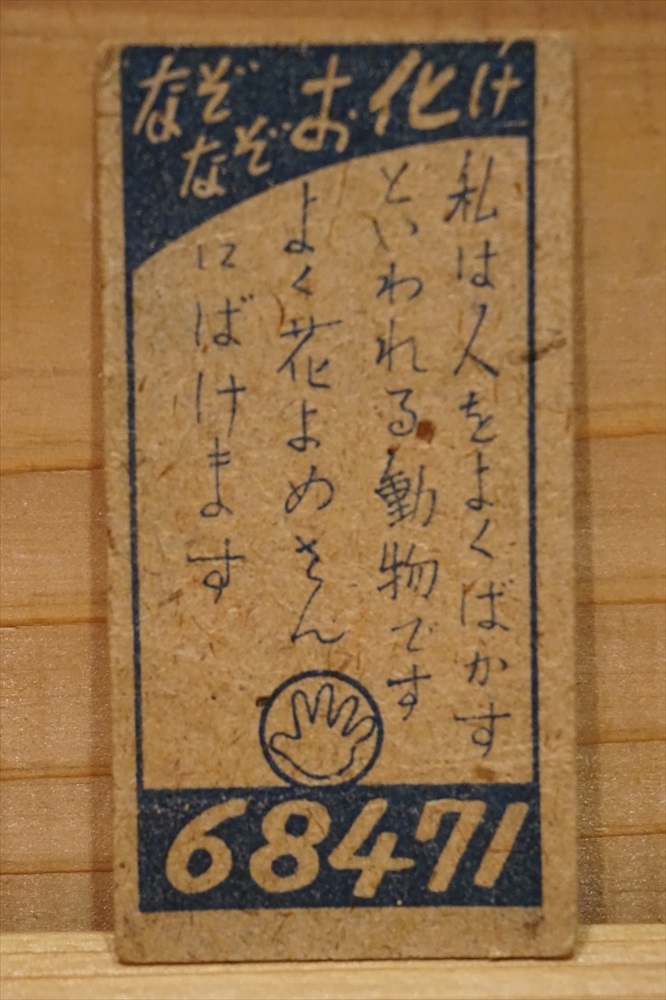 なぞなぞお化け
私は人をよくばかす
といわれる動物です
よく花よめさん
にばけます
68471